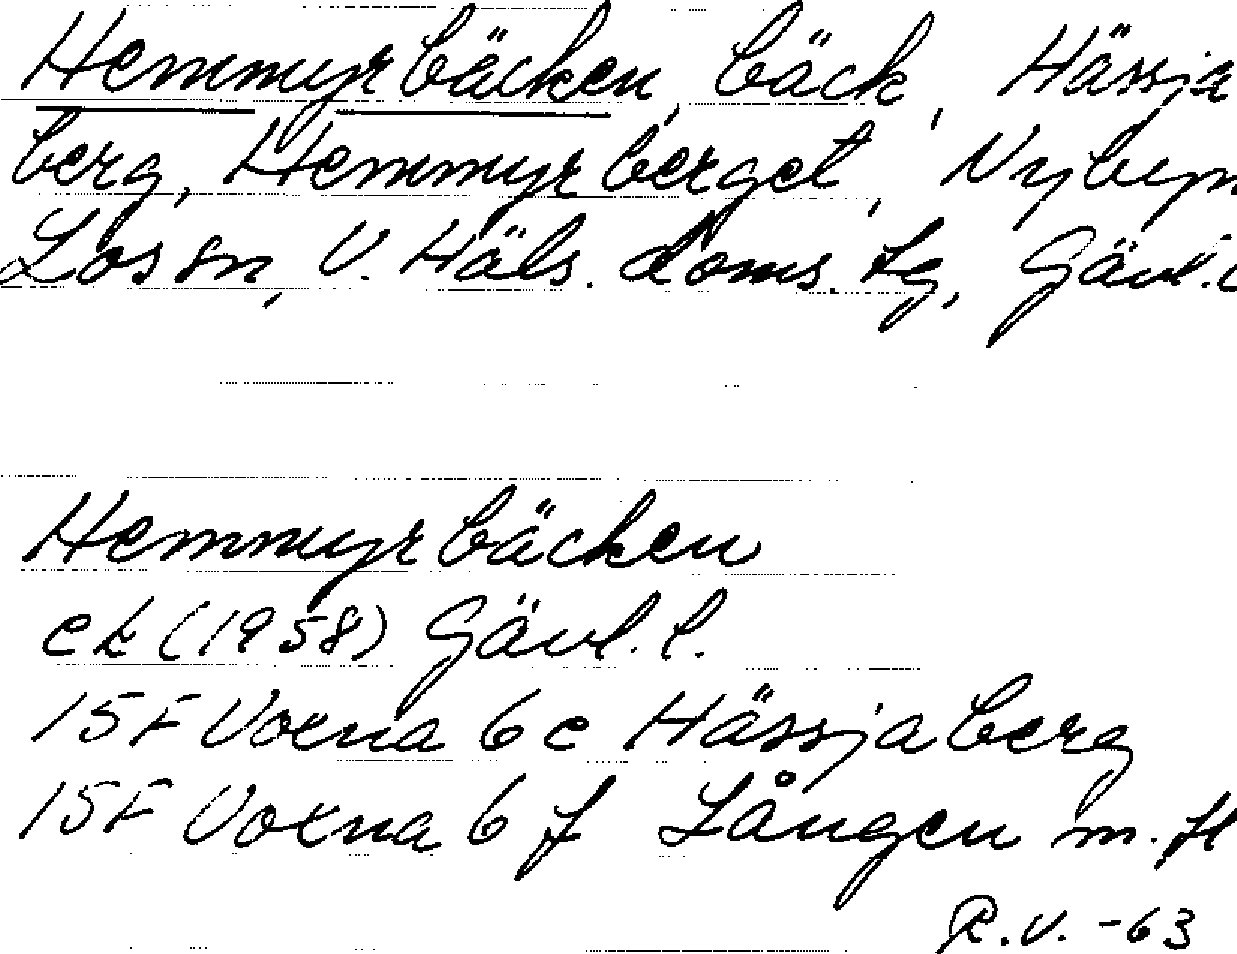 Hemmyrbäcken, bäck, Hässja
berg, Hemmyrberget,
Los sn, V. Häls. doms. tg, Gävl. l
Hemmyrbäcken
ek (1958) Gävl. l.
15F Voxna 6e Hässjaberg
15F Voxna 6f Lången m. fl
R.V. -63